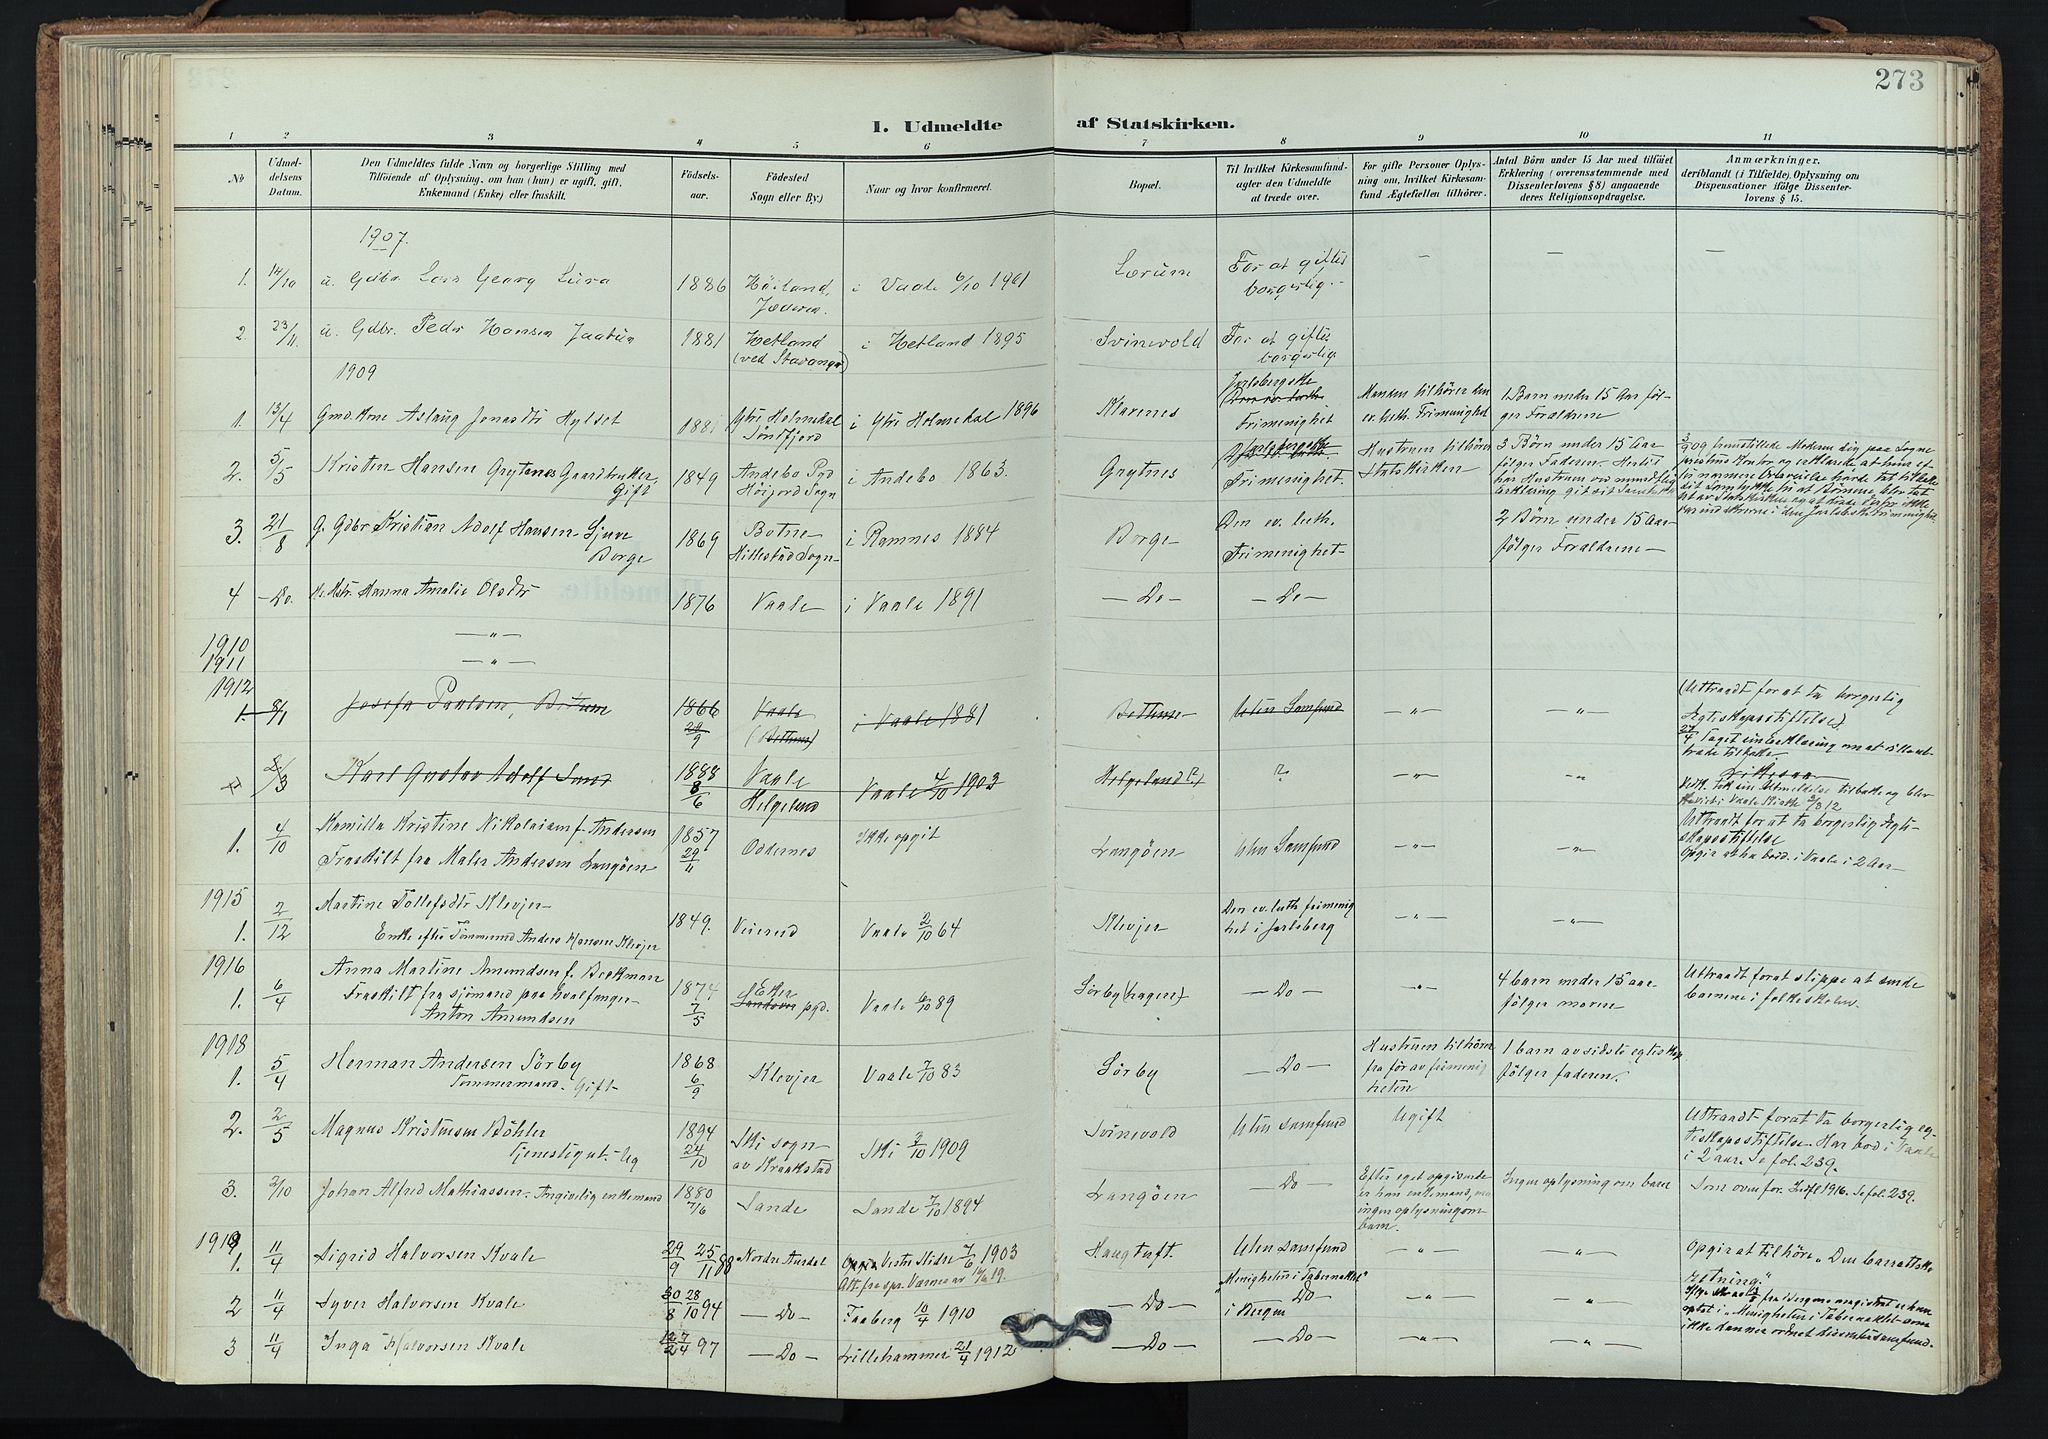 273
I. Udmeldte af Statskirken.
1 2 3 4 5 6 7 8 9 10 11
No
Udmeldelsens Datum.
Den Udmeldtes fulde Navn og borgerlige Stilling med
Tilföiende af Oplysning, om han (hun) er ugift, gift,
Enkemand (Enke) eller fraskilt.
Födselsaar.
Födested
Sogn eller By.)
Naar og hvor konfirmeret.
Bopæl.
Til hvilket Kirkesamfund
agter den Udmeldte
at træde over.
For gifte Personer Oplysning om, hvilket Kirkesamfund Ægtefællen tilhörer.
Antal Börn under 15 Aar med tilföiet
Erklæring (overensstemmende med
Dissenterlovens § 8) angaaende
deres Religionsopdragelse.
Anmærkninger,
deriblandt (i Tilfælde) Oplysning om
Dispensationer ifölge Dissenterlovens § 15.
1907.
1. 14/10 u. Gdbr. Lars Georg Lura 1886 Höiland, Jæderen. i Vaale 6/10 1901 Lærum For at giftes borgerlig. — — —
2. 23/11 u. Gdbr. Peder Hansen Jaatun 1881 Hetland (ved Stavanger) i Hetland 1895 Svinevold For at giftes borgerlig
1909
1. 13/4 Gmd. Kone Aslaug Jonasdtr Hylset 1881 Ytre Holmedal Söndfjord i Ytre Holmedal 1896 Klavenes Jarlsbergske Frimenighet Manden tilhörer den ev. luth. Frimenighet 1 Barn under 15 Aar fölger Foraldrene
2. 5/5 Kristen Hansen Grytenes Gaardbruker Gift 1849 Andebo Pgd Höijord Sogn i Andebo 1863. Grytnes Jarlsbergske Frimenighet. Hustruen tilhörer Statskirken 3 Börn under 15 Aar fölger Faderen. Hertil har Hustruen ved mundtlig erklæring git sit Samtykke
3. 21/8 G. Gdbr. Kristian Adolf Hansen Ljuve Borge 1869 Botne Hillestad Sogn i Ramnes 1884 Borge Den ev. luth. Frimenighet 2 Börn under 15 Aar fölger Foraldrene
4 Do. Hanna Amalie Olsdtr 1876 Vaale i Vaale 1891 — Do — — Do —
1910 — " —
1911 — " —
1912
1. 8/1 Josefa Paulsen, Bettum 1866 29/9 Vaale (Bettum) i Vaale 1881 Bettum Uten Samfund — " — — " — (Uttraadt for at ta borgerlig Ægteskapsstiftelse)
Karl Gustav Adolf Sund 1888 8/6 Vaale Helgeland Vaale 4/10 1903 Helgeland(?) ? — " — "
1. 4/10 Kamilla Kristine Nikolaisen f. Andersen
Fraskilt fra Maler Andersen Langöen 1857 29/11 Oddernes Ikke opgit Langöen Uten Samfund — " — — " — Uttraadt for at ta borgerlig Ægteskapsstiftelse
Opgir at ha bodd i Vaale i 2 Aar
1915
1. 2/12 Martine Tollefsdtr Klevjer
Enke efter Tömmermand Anders Hansen Klevjer 1849. Veierud Vaale 2/10 64 Klevjer Den ev. luth. frimenighet i Jarlsberg — " — — " —
1916
1. 6/4 Anna Martine Amundsen f. Beckman
Fraskilt fra sjömand paa hvalfanger
Anton Amundsen 1874 7/5 Eker pgd. Vaale 6/10 89 Sörby — Do — — " — 4 barn under 15 aar fölger moren Uttraadt forat slippe at sende barnene i folkeskolen.
1918
1. 5/4 Herman Andersen Sörby
Tömmermand. Gift 1868 6/9 Klevjer Vaale 7/10 83 Sörby — Do — Hustruen tilhörer fra för av frimenigheten 1 barn av sidste egteskap fölger faderen.
2. 2/5 Magnus Kristensen Böhler
Tjenestegut. Ug 1894 24/10 Ski sogn av Kraakstad Ski 3/10 1909 Svinevold Uten samfund Ugift Uttraadt forat ta borgerlig egteskapsstiftelse. Har bod i Vaale i 2 aar. Se fol. 239.
3. 2/10 Johan Alfred Mathiassen. Angivelig enkemand 1880 7/6 Sande Sande 7/10 1894 Langöen — Do — Efter eget opgivende er han enkemand, ingen oplysning om barn. Ingen oplysning om barn Som ovenfor. Indfl. 1916. Se fol. 239.
1919
1. 11/4 Sigrid Halvorsen Kvale 29/9 25/11 88 Nordre Aurdal Vestre Slidre 7/6 1903 Haugtuft. Uten samfund — " — — " — Opgir at tilhöre "Den barrattske retning."
2 11/4 Syver Halvorsen Kvale 30/8 28/10 94 — Do — Faaberg 10/4 1910 — Do — "Menigheten i Tabernaklet" i Bergen Do — — " — — " —
3 11/4 Inga Halvorsen Kvale 12/2 7/4 97 — Do — Lillehammer 21/4 1912 — Do — — Do — — " — — " —